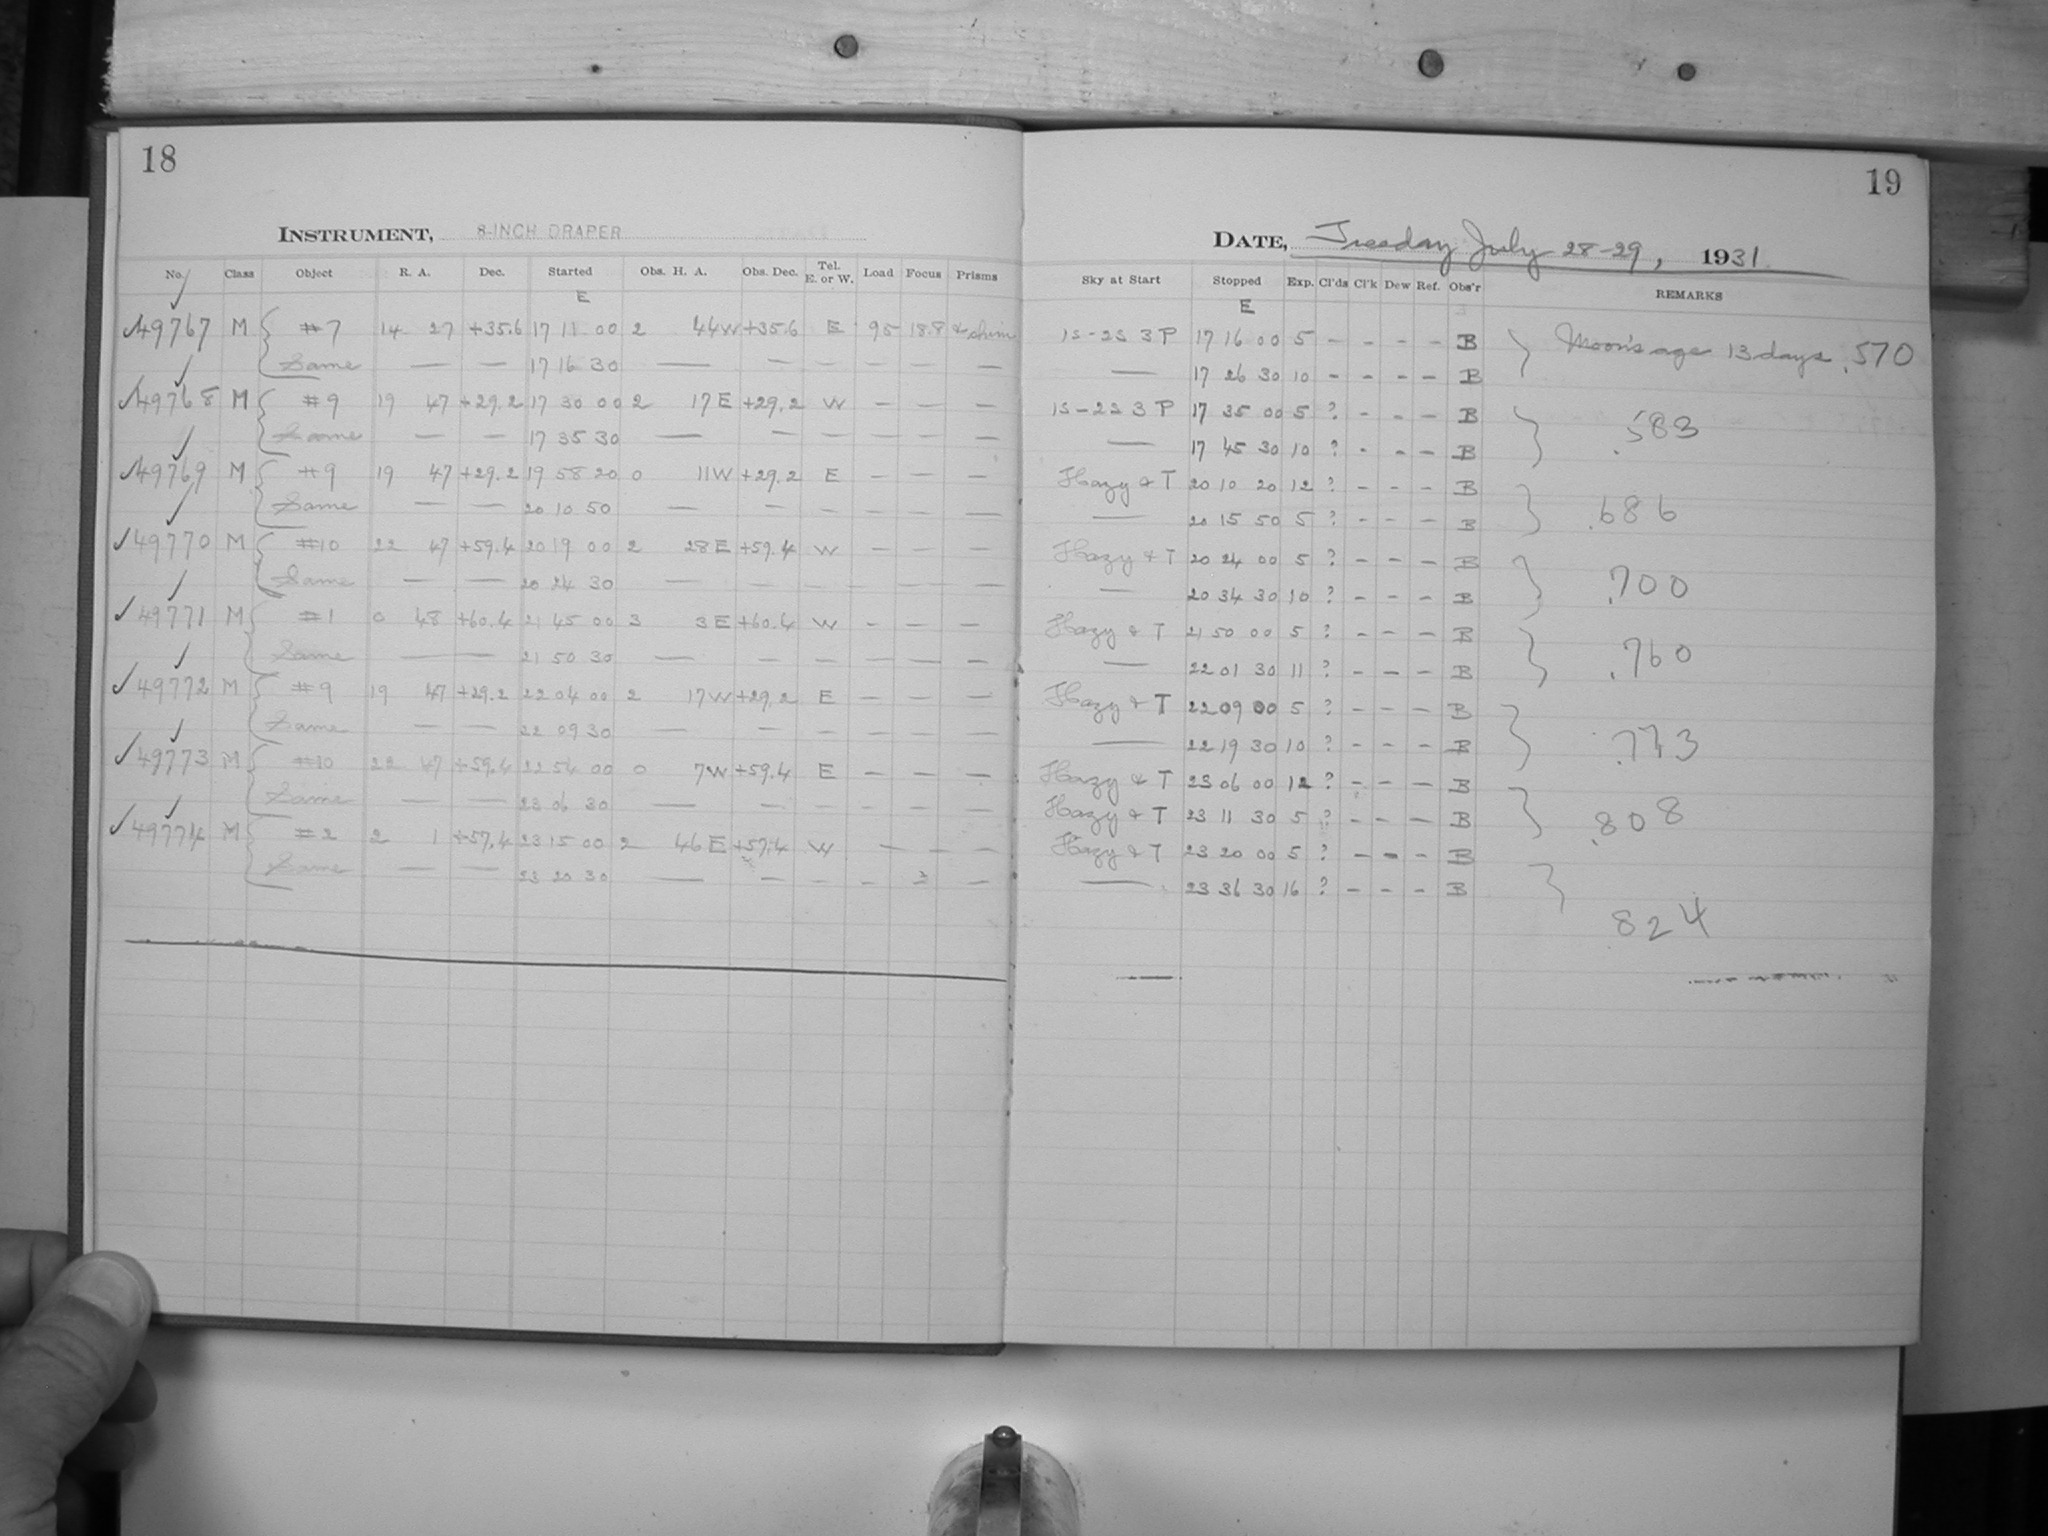 18
INSTRUMENT, 8-INCH DRAPER
No. Class Object R. A. Dec. Started Obs. H. A. Obs. Dec. Tel. E. or W. Load Focus Prisms
E
49767 M #7 14 27 +35.6 17 11 00 2 44 W +35.6 E 95 18.8
Same — — 17 16 30 — — — — — —
49768 M #9 19 47 +29.2 17 30 00 2 17 E +29.2 W — — —
Same — — 17 35 30 — — — — — —
49769 M #9 19 47 +29.2 19 58 20 0 11 W +29.2 E — — —
Same — — 20 10 50 — — — — — —
49770 M #10 22 47 +59.4 20 19 00 2 28 E +59.4 W — — —
Same — — 20 24 30 — — — — — —
49771 M #1 0 48 +60.4 21 45 00 3 3 E +60.4 W — — —
Same — — 21 50 30 — — — — — —
49772 M #9 19 47 +29.2 22 04 00 2 17 W +29.2 E — — —
Same — — 22 09 30 — — — — — —
49773 M #10 22 47 +59.4 22 54 00 0 7 W +59.4 E — — —
Same — — 23 06 30 — — — — — —
49774 M #2 2 1 +57.4 23 15 00 2 46 E +57.4 W — — —
Same — — 23 20 30 — — — — —
19
DATE, Tuesday July 28-29, 1931
Sky at Start Stopped Exp. Cl'ds Cl'k Dew Ref. Obs'r REMARKS
E
1S-2S 3 P 17 16 00 5 - - - - B Moon's age 13 days .570
— 17 26 30 10 - - - - B
1S-2S 3 P 17 35 00 5 ? - - - B .583
— 17 45 30 10 ? - - - B
Hazy & T 20 10 20 12 ? - - - B .686
— 20 15 50 5 ? - - - B
Hazy & T 20 24 00 5 ? - - - B .700
— 20 34 30 10 ? - - - B
Hazy & T 21 50 00 5 ? - - - B .760
— 22 01 30 11 ? - - - B
Hazy & T 22 09 00 5 ? - - - B .773
— 22 19 30 10 ? - - - B
Hazy & T 23 06 00 12 ? - - - B .808
Hazy & T 23 11 30 5 ? - - - B
Hazy & T 23 20 00 5 ? - - - B
— 23 36 30 16 ? - - - B
.824